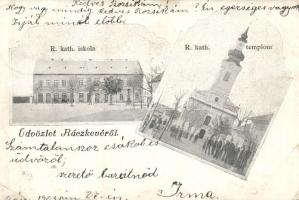 Kedves Rózsikám,
Hogy vagy mindig kedves Rózsikám? Én egészséges vagyok
R. kath. iskola
R. kath. templom
Üdvözlet Ráczkevéről.
Számtalanszor csókol és
üdvözöl
szerető barátnőd
Irma